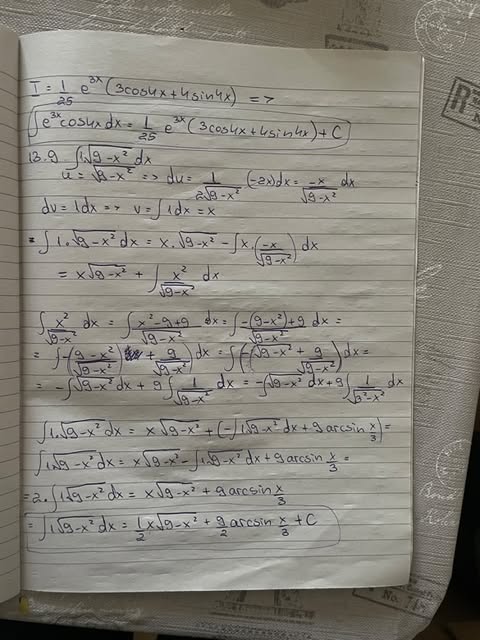 I = 1/25 e^3x (3cos4x + 4sin4x) =>
∫e^3x cos4x dx = 1/25 e^3x (3cos4x + 4sin4x) + C
13.9 ∫1√9-x² dx
u = √9-x² => du = 1/2√9-x² (-2x)dx = -x/√9-x² dx
dv = 1dx => v = ∫1dx = x
= ∫1.√9-x² dx = x.√9-x² - ∫x.(-x/√9-x²) dx
= x√9-x² + ∫x²/√9-x² dx
∫x²/√9-x² dx = ∫x²-9+9/√9-x² dx = ∫-(9-x²)+9/√9-x² dx =
= ∫-(9-x²/√9-x²) + 9/√9-x² dx = ∫(-√9-x² + 9/√9-x²)dx =
= -∫√9-x² dx + 9∫1/√9-x² dx = -∫√9-x² dx + 9∫1/√3²-x² dx
∫1.√9-x² dx = x√9-x² + (-∫1√9-x² dx + 9arcsin x/3) =
∫1√9-x² dx = x√9-x² - ∫1√9-x² dx + 9arcsin x/3 =
= 2.∫1√9-x² dx = x√9-x² + 9arcsin x/3
= ∫1√9-x² dx = 1/2 x√9-x² + 9/2 arcsin x/3 + C
R
No.